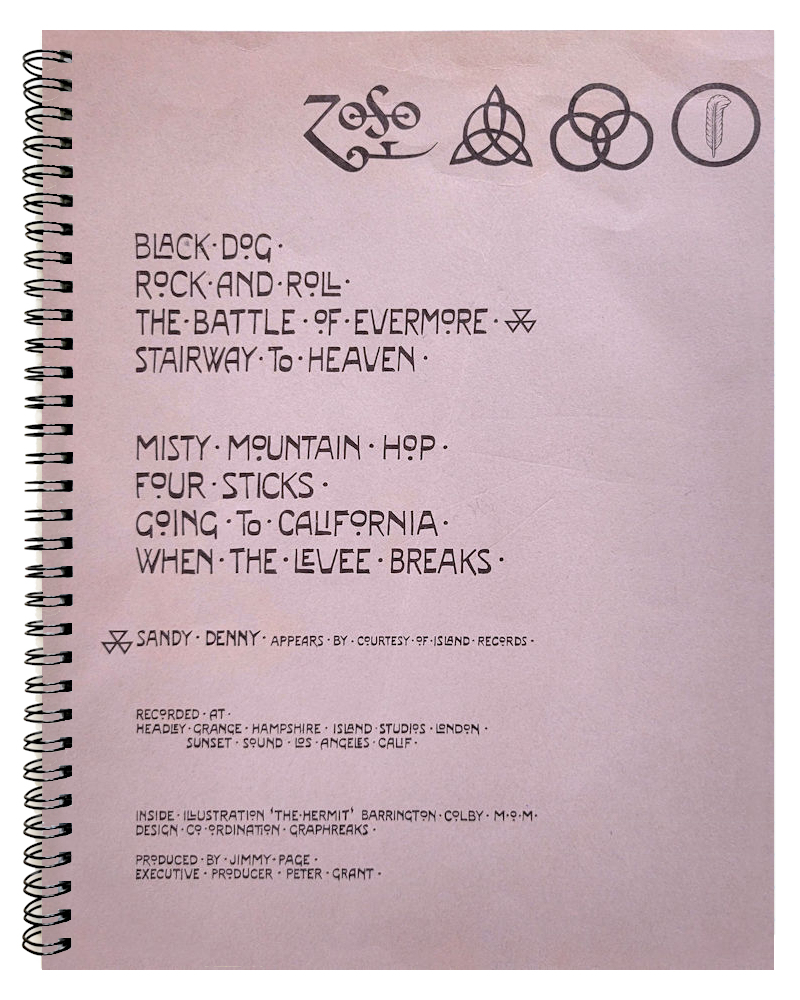 ZOSO
BLACK·DOG·
ROCK·AND·ROLL·
THE·BATTLE·OF·EVERMORE·
STAIRWAY·To·HEAVEN·
MISTY·MOUNTAIN·HOP·
FOUR·STICKS·
GOING·To·CALIFORNIA·
WHEN·THE·LEVEE·BREAKS·
SANDY·DENNY·APPEARS·BY·COURTESY·OF·ISLAND·RECORDS·
RECORDED·AT·
HEADLEY·GRANGE·HAMPSHIRE·ISLAND·STUDIOS·LONDON·
SUNSET·SOUND·LOS·ANGELES·CALIF·
INSIDE·ILLUSTRATION 'THE·HERMIT' BARRINGTON·COLBY·M·O·M·
DESIGN·CO·ORDINATION·GRAPHREAKS·
PRODUCED·BY·JIMMY·PAGE·
EXECUTIVE·PRODUCER·PETER·GRANT·